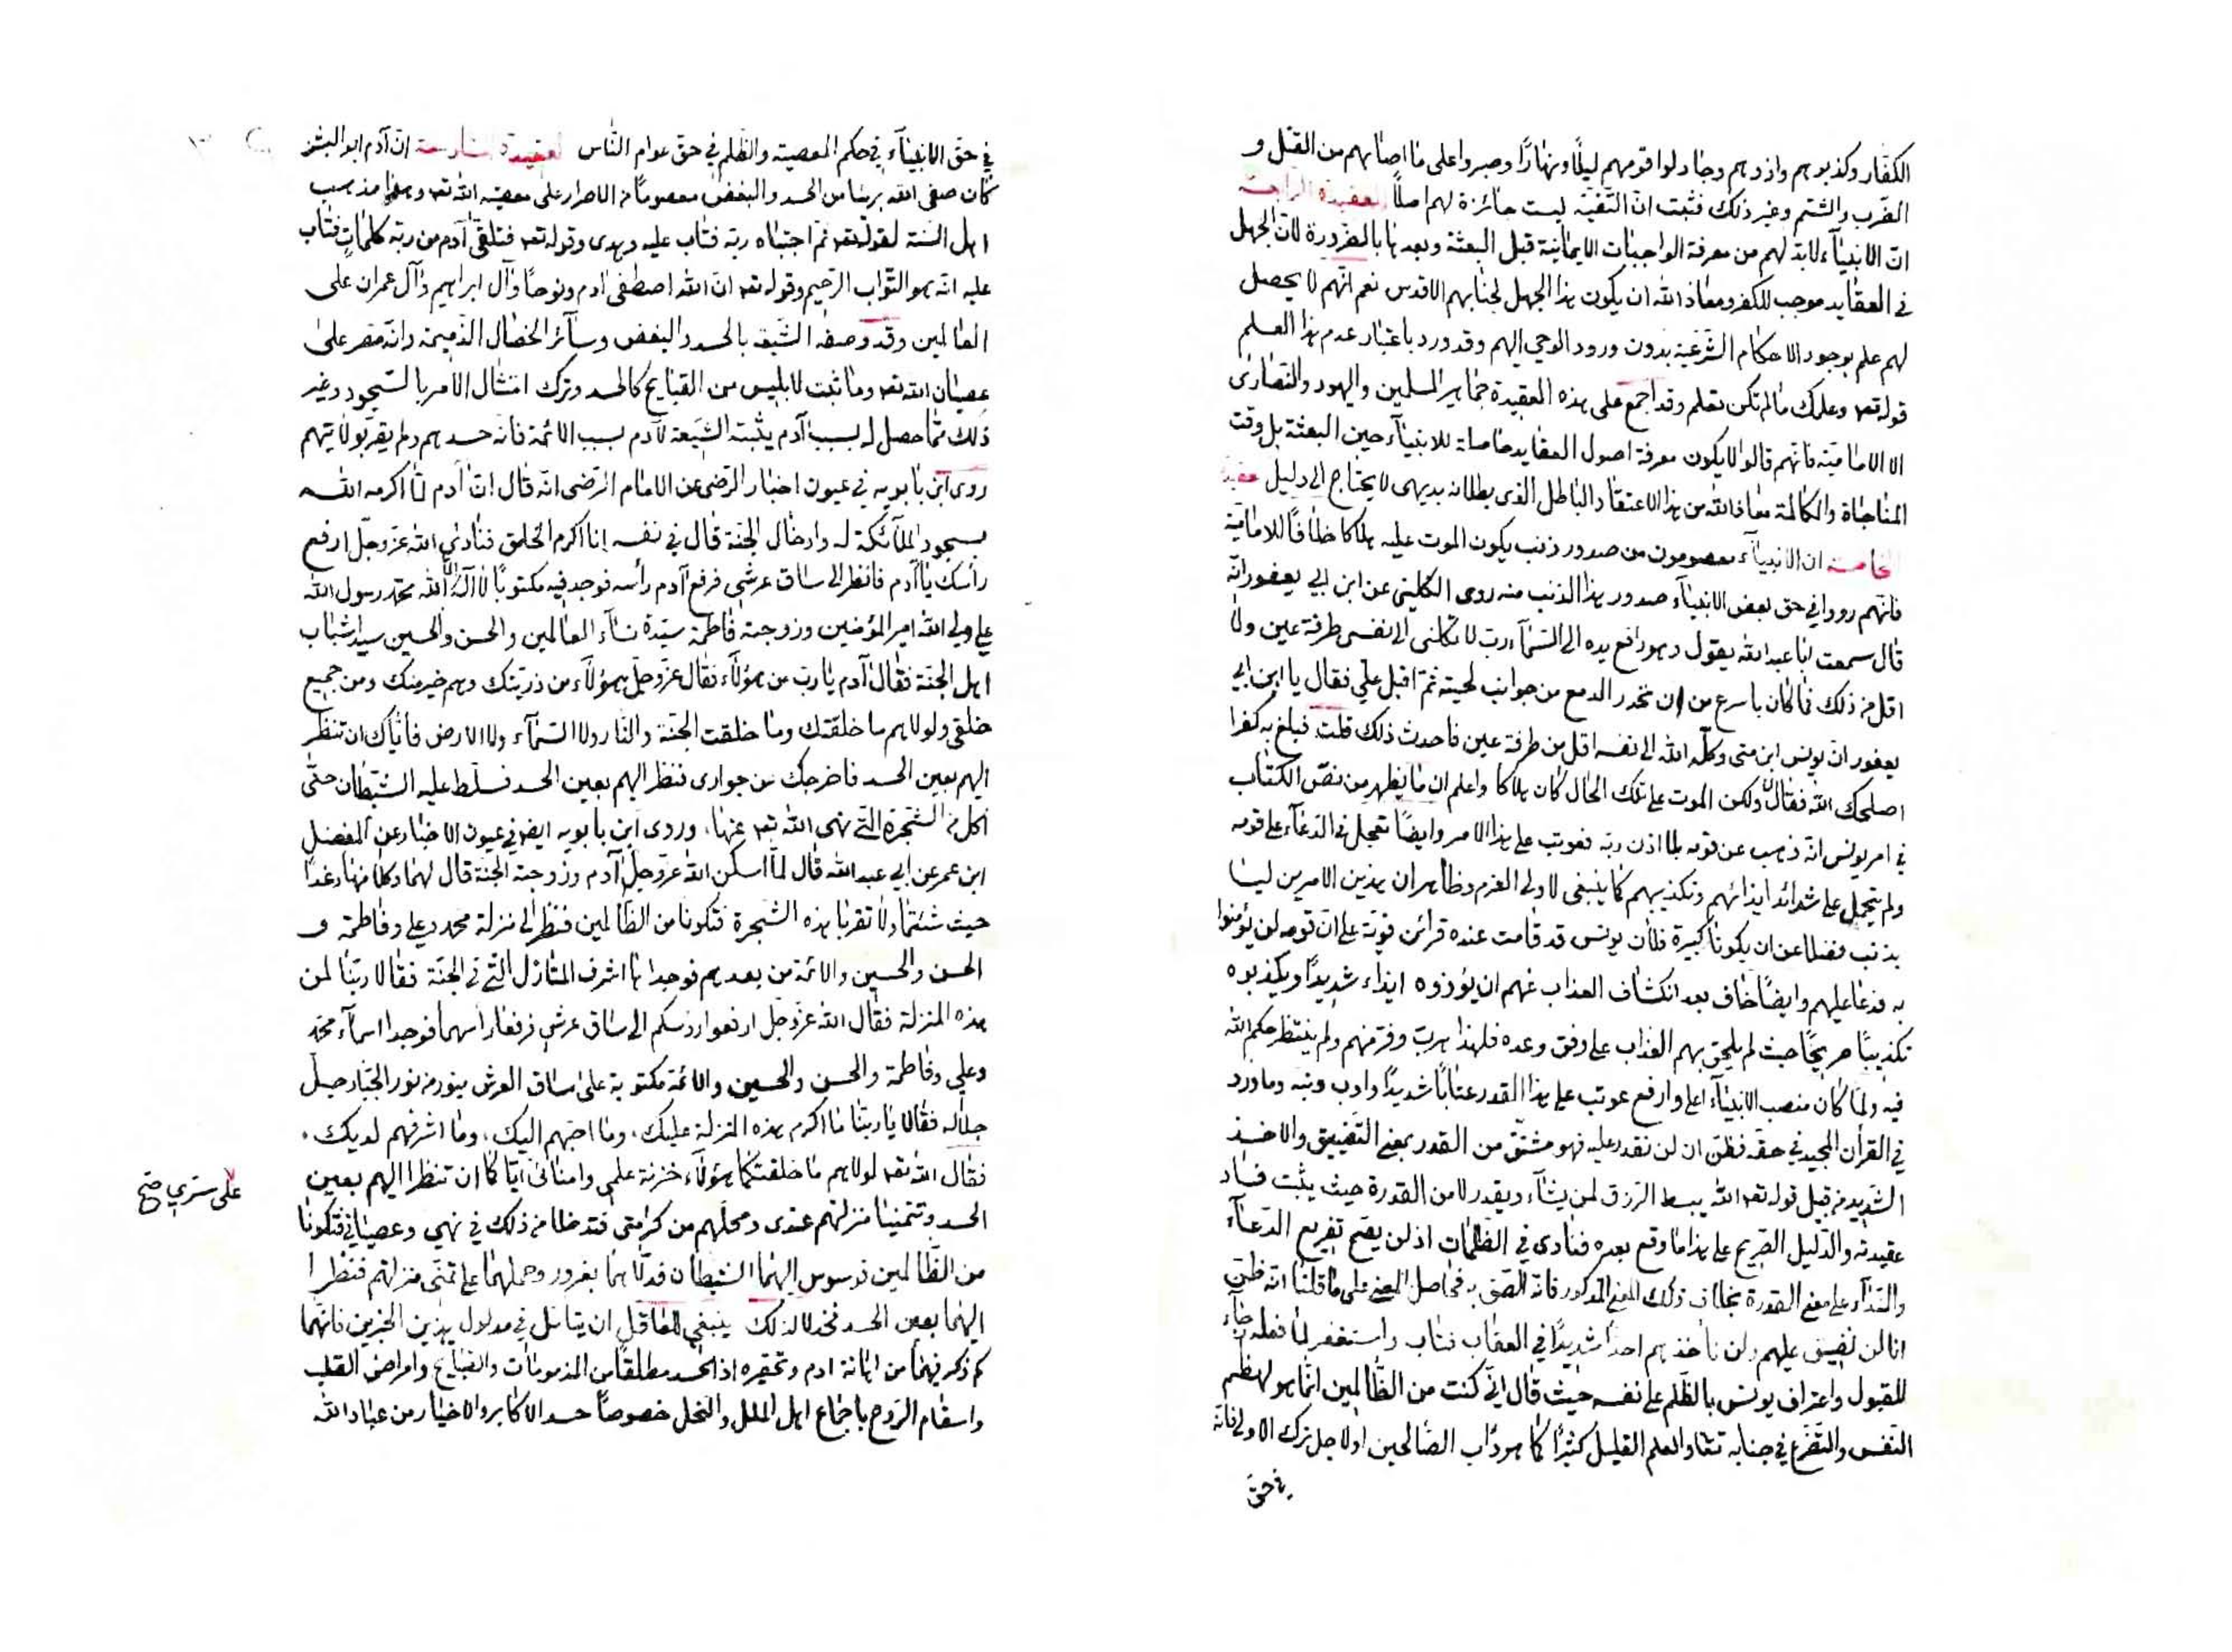 الكفار وكذبوهم واذوهم وجادلوا قومهم ليلًا ونهارًا وصبروا على ما اصابهم من القتل و
الضّرب والشتم وغير ذلك فثبت انّ التّقيّة ليست جائزة لهم اصلًا العقيدة الرابعة
انّ الانبيآء لابدّ لهم من معرفة الواجبات الايمانية قبل البعثة وبعدها بالضّرورة لانّ الجهل
في العقايد موجب للكفر ومعاذ الله ان يكون هذا الجهل لجنابهم الاقدس نعم انّهم لا يحصل
لهم علم بوجود الاحكام الشّرعيّة بدون ورود الوحي اليهم وقد ورد باعتبار عدم هذا العلم
قوله تعه وعلمك ما لم تكن تعلم وقد اجمع على هذه العقيدة جماهير المسلمين واليهود والنّصارى
الا الاماميّة فانّهم قالوا لا يكون معرفة اصول العقايد حاصلة للانبيآء حين البعثة بل وقت
المناجاة والمكالمة معاذ الله من هذا الاعتقاد الباطل الذي بطلانه بديهى لا يحتاج الى دليل عقيدة
الخامسة ان الانبيآء معصومون من صدور ذنب يكون الموت عليه هلاكا خلافًا للاماميّة
فانّهم رووا في حق بعض الانبيآء صدور هذا الذنب منه روى الكلينى عن ابن ابي يعفور انّه
قال سمعت ابا عبد الله يقول وهو رافع يده الى السّمآء ربّ لا تكلنى الى نفسى طرفة عين ولا
اقل من ذلك فما كان باسرع من ان تحدر الدمع من جوانب لحيته ثمّ اقبل علّي فقال يا ابن ابي
يعفور انّ يونس ابن متى وكلّه الله الى نفسه اقل من طرفة عين فاحدث ذلك قلت فبلغ به كفرا
اصلحك الله فقال لا ولكن الموت على تلك الحال كان هلاكا واعلم ان ما يظهر من نصّ الكتاب
في امر يونس انّه ذهب عن قومه بلا اذن ربّه فعوتب على هذا الامر وايضًا تعجل في الدّعآء على قومه
ولم يتحمل على شدائد ايذائهم وتكذيبهم كما ينبغى لاولي العزم وظاهر ان هذين الامرين ليسا
بذنب فضلا عن ان يكونا كبيرة فلان يونس قد قامت عنده قرائن قويّة على انّ قومه لن يؤمنوا
به فدعا عليهم وايضًا خاف بعد انكشاف العذاب عنهم ان يؤذوه ايذاء شديدًا ويكذبوه
تكذيبًا صريحًا حيث لم يلحق بهم العذاب على وفق وعده فلهذا هرب وفرّ منهم ولم ينتظر حكم الله
فيه ولمّا كان منصب الانبيآء اعلى وارفع عوتب على هذا القدر عتابًا شديدًا وادب ونبه وما ورد
في القرآن المجيد في حقّه فظنّ ان لن نقدر عليه فهو مشتقّ من القدر بمعنى التّضييق والاخذ
الشّديد من قبيل قوله تعه الله يبسط الرّزق لمن يشآء ويقدر لا من القدرة حيث يثبت فساد
عقيدته والدّليل الصّريح على هذا ما وقع بعده فنادى في الظلمات اذ لن يصحّ تفريع الدّعآء
والنّدآء على معنى القدرة بخلاف ذلك المعنى المذكور فانّه الصق به فحاصل المعنى على ما قلنا انّه ظنّ
انا لن نضيق عليهم ولن ناخذهم اخذًا شديدًا في العقاب فتاب واستغفر لما فعله رجآء
للقبول واعتراف يونس بالظّلم على نفسه حيث قال انّي كنت من الظّالمين انّما هو لهضم
النّفس والتضرّع في جنابه تعالى والعلم القليل كثيرًا كما هو دأب الصّالحين او لاجل ترك الاولى فانّه
في حق
في حقّ الانبيآء في حكم المعصية والظّلم في حق عوام النّاس العقيدة السادسة انّ آدم ابو البشر
كان صفى الله بريئا من الحسد والبغض معصومًا من الاصرار على معصية الله تعه وهذا مذهب
اهل السّنة لقوله تعه ثمّ اجتباه ربّه فتاب عليه وهدى وقوله تعه فتلقّى آدم من ربّه كلمات فتاب
عليه انّه هو التّوّاب الرّحيم وقوله تعه انّ الله اصطفى آدم ونوحًا وآل ابراهيم وآل عمران على
العالمين وقد وصفه الشّيعة بالحسد والبغض وسآئر الخصال الذّميمة وانّه مصر على
عصيان الله تعه وما ثبت لابليس من القبايح كالحسد وترك امتثال الامر بالسّجود وغير
ذلك ممّا حصل له بسبب آدم يثبته الشّيعة لآدم بسبب الائمّة فانّه حسدهم ولم يقرّ بولايتهم
روى ابن بابويه في عيون اخبار الرّضى عن الامام الرّضى انّه قال انّ آدم لمّا اكرمه الله
بسجود الملآئكة له وادخال الجنّة قال في نفسه انا اكرم الخلق فنادى الله عزّ وجلّ ارفع
رأسك يا آدم فانظر الى ساق عرشي فرفع آدم رأسه فوجد فيه مكتوبًا لا آله الّا الله محمّد رسول الله
علي ولي الله امير المؤمنين وزوجته فاطمة سيّدة نسآء العالمين والحسن والحسين سيدا شباب
اهل الجنّة فقال آدم يا ربّ من هؤلآء فقال عزّ وجلّ هؤلآء من ذرّيتك وهم خير منك ومن جميع
خلقى ولولاهم ما خلقتك وما خلقت الجنّة والنّار ولا السّمآء ولا الارض فأيّاك ان تنظر
اليهم بعين الحسد فاخرجك من جوارى فنظر اليهم بعين الحسد فسلّط عليه الشّيطان حتّى
اكل من الشّجرة التي نهى الله تعه عنها، وروى ابن بابويه ايضًا في عيون الاخبار عن المفضل
ابن عمر عن ابي عبد الله قال لمّا اسكن الله عزّ وجلّ آدم وزوجته الجنّة قال لهما وكلا منها رغدًا
حيث شئتما ولا تقربا هذه الشّجرة فتكونا من الظّالمين فنظر الى منزلة محمد وعلي وفاطمة و
الحسن والحسين والائمّة من بعدهم فوجداها اشرف المنازل التي في الجنّة فقالا ربّنا لمن
هذه المنزلة فقال الله عزّ وجلّ ارفعوا رؤسكم الى ساق عرشى فرفعا رأسهما فوجدا اسمآء محمّد
وعلي وفاطمة والحسن والحسين والائمّة مكتوبة على ساق العرش بنور من نور الجبّار جلّ
جلاله فقالا يا ربّنا ما اكرم هذه المنزلة عليك، وما احبّهم اليك، وما اشرفهم لديك،
فقال الله تعه لولاهم ما خلقتكما هؤلآء خزنة علمى وامنائى ايّاكما ان تنظرا اليهم بعين
على سري صح
الحسد وتتمنّيا منزلتهم عندى ومحلّهم من كرامتى فتدخلا من ذلك في نهيي وعصياني فتكونا
من الظّالمين فوسوس اليهما الشّيطان فدلّاهما بغرور وحملهما على تمنّى منزلتهم فنظرا
اليهما بعين الحسد فخذلا لذلك ينبغي للعاقل ان يتأمّل في مدلول هذين الخبرين فانّهما
كم ذكر فيهما من اهانة ادم وتحقيره اذ الحسد مطلقًا من المذمومات والقبايح وامراض القلب
واسقام الرّوح باجماع اهل الملل والنحل خصوصًا حسد الاكابر والاخيار من عباد الله